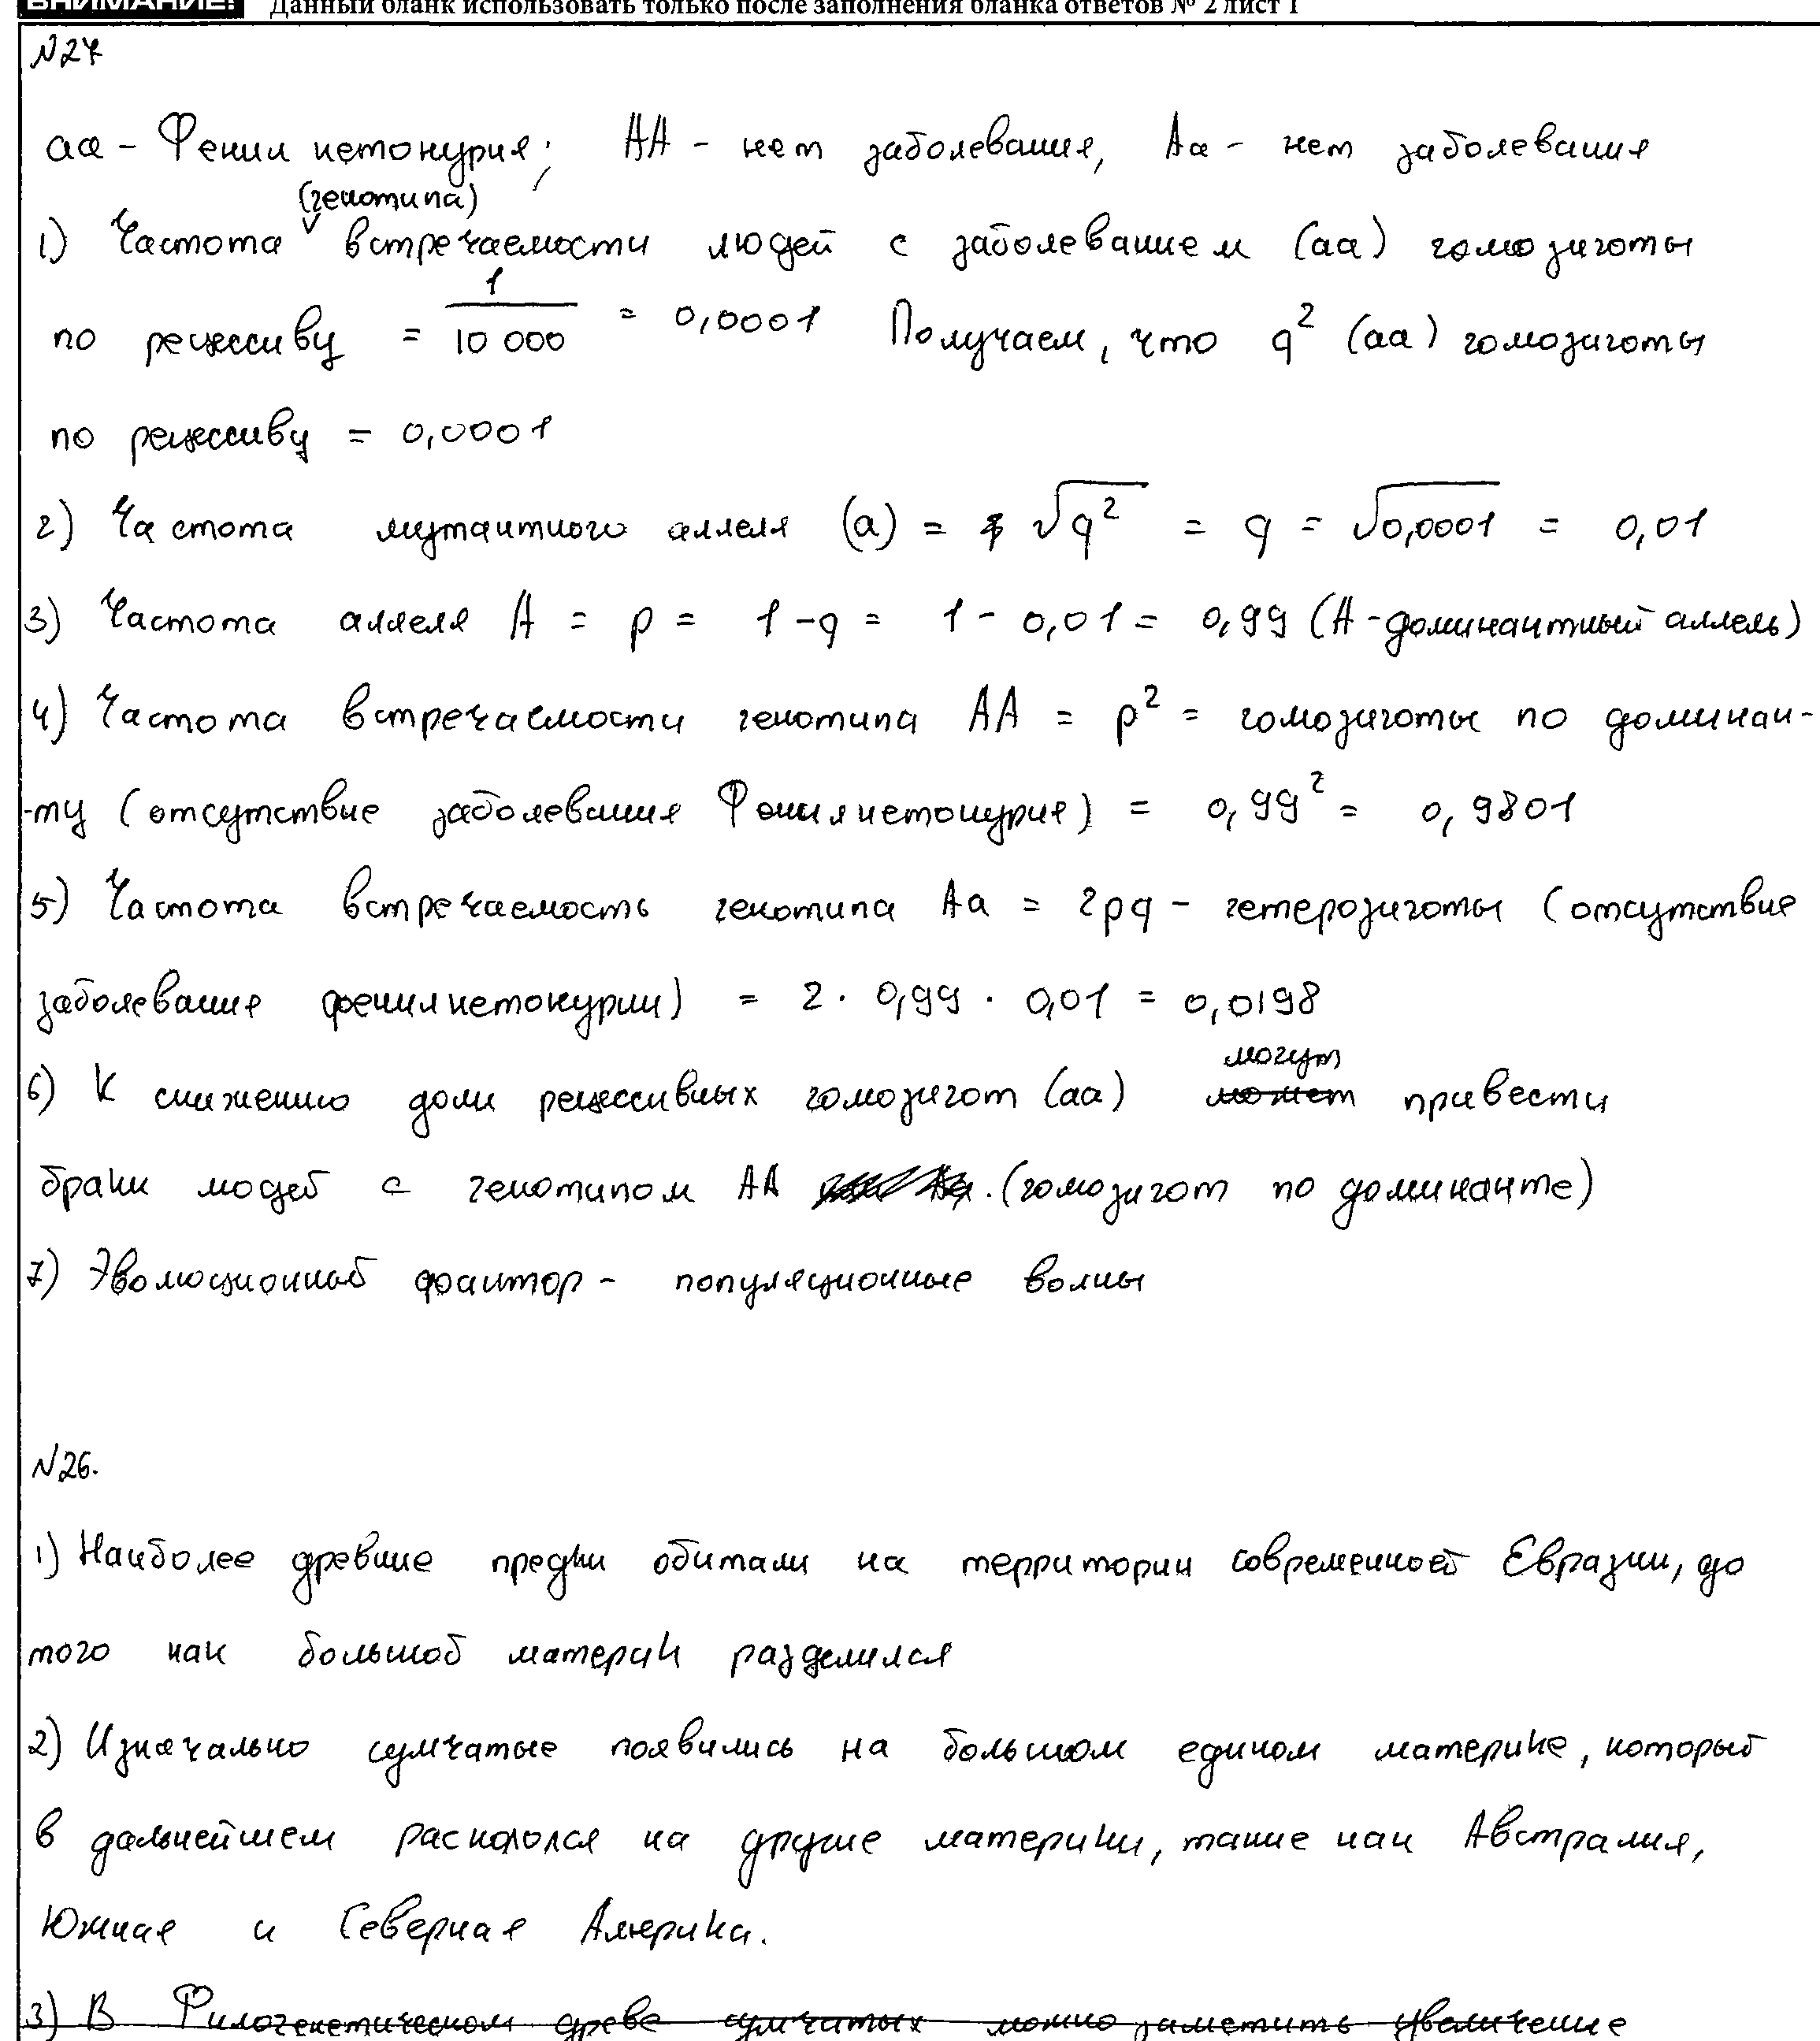 ВНИМАНИЕ! Данный бланк использовать только после заполнения бланка ответов № 2 лист 1
№27
аа - Фенилкетонурия; АА - нет заболевания, Аа - нет заболевания
(генотипа)
1) Частота встречаемости людей с заболеванием (аа) гомозиготы
по рецессиву = 1/10 000 = 0,0001 Получаем, что q² (аа) гомозиготы
по рецессиву = 0,0001
2) Частота мутантного аллеля (а) = √q² = q = √0,0001 = 0,01
3) Частота аллеля А = p = 1-q = 1 - 0,01 = 0,99 (А-доминантный аллель)
4) Частота встречаемости генотипа АА = p² = гомозиготы по доминан-
-ту (отсутствие заболевания Фенилкетонурия) = 0,99² = 0,9801
5) Частота встречаемость генотипа Аа = 2pq - гетерозиготы (отсутствие
заболевания фенилкетонурии) = 2 · 0,99 · 0,01 = 0,0198
могут
6) К снижению доли рецессивных гомозигот (аа) может привести
браки людей с генотипом АА . (гомозигот по доминанте)
7) Эволюционный фактор - популяционные волны
№26.
1) Наиболее древние предки обитали на территории современной Евразии, до
того как большой материк разделился
2) Изначально сумчатые появились на большом едином материке, который
в дальнейшем раскололся на другие материки, такие как Австралия,
Южная и Северная Америка.
3) В Филогенетическом древе сумчатых можно заметить увеличение